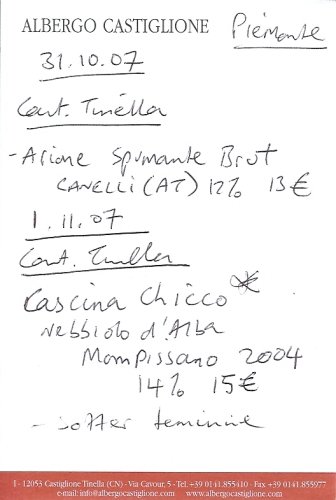 ALBERGO CASTIGLIONE
Piemonte
31.10.07
Cant. Tinella
- Arione Spumante Brut
CANELLI (AT) 12% 13€
1.11.07
Cant. Tinella
Cascina Chicco *
Nebbiolo d'Alba
Mompissano 2004
14% 15€
- softer feminine
I - 12053 Castiglione Tinella (CN) - Via Cavour, 5 - Tel. +39 0141.855410 - Fax +39 0141.855977
e-mail: info@albergocastiglione.com www.albergocastiglione.com